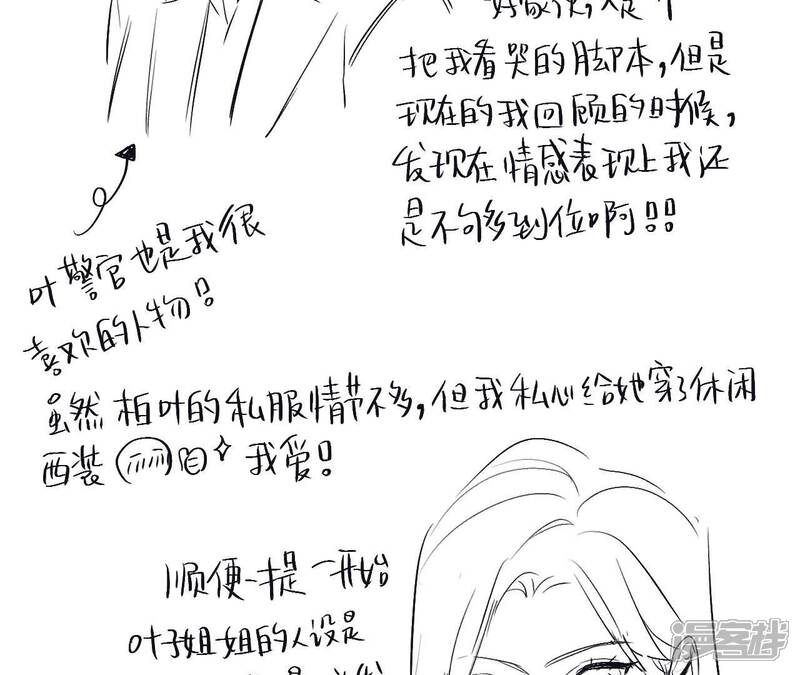 把我看哭的脚本,但是
现在的我回顾的时候,
发现在情感表现上我还
是不够到位啊!!
叶警官也是我很
喜欢的人物!
虽然柏叶的私服情节不多,但我私心给她穿了休闲
西装 我爱!
顺便一提一开始
叶子姐姐的人设是
漫客栈